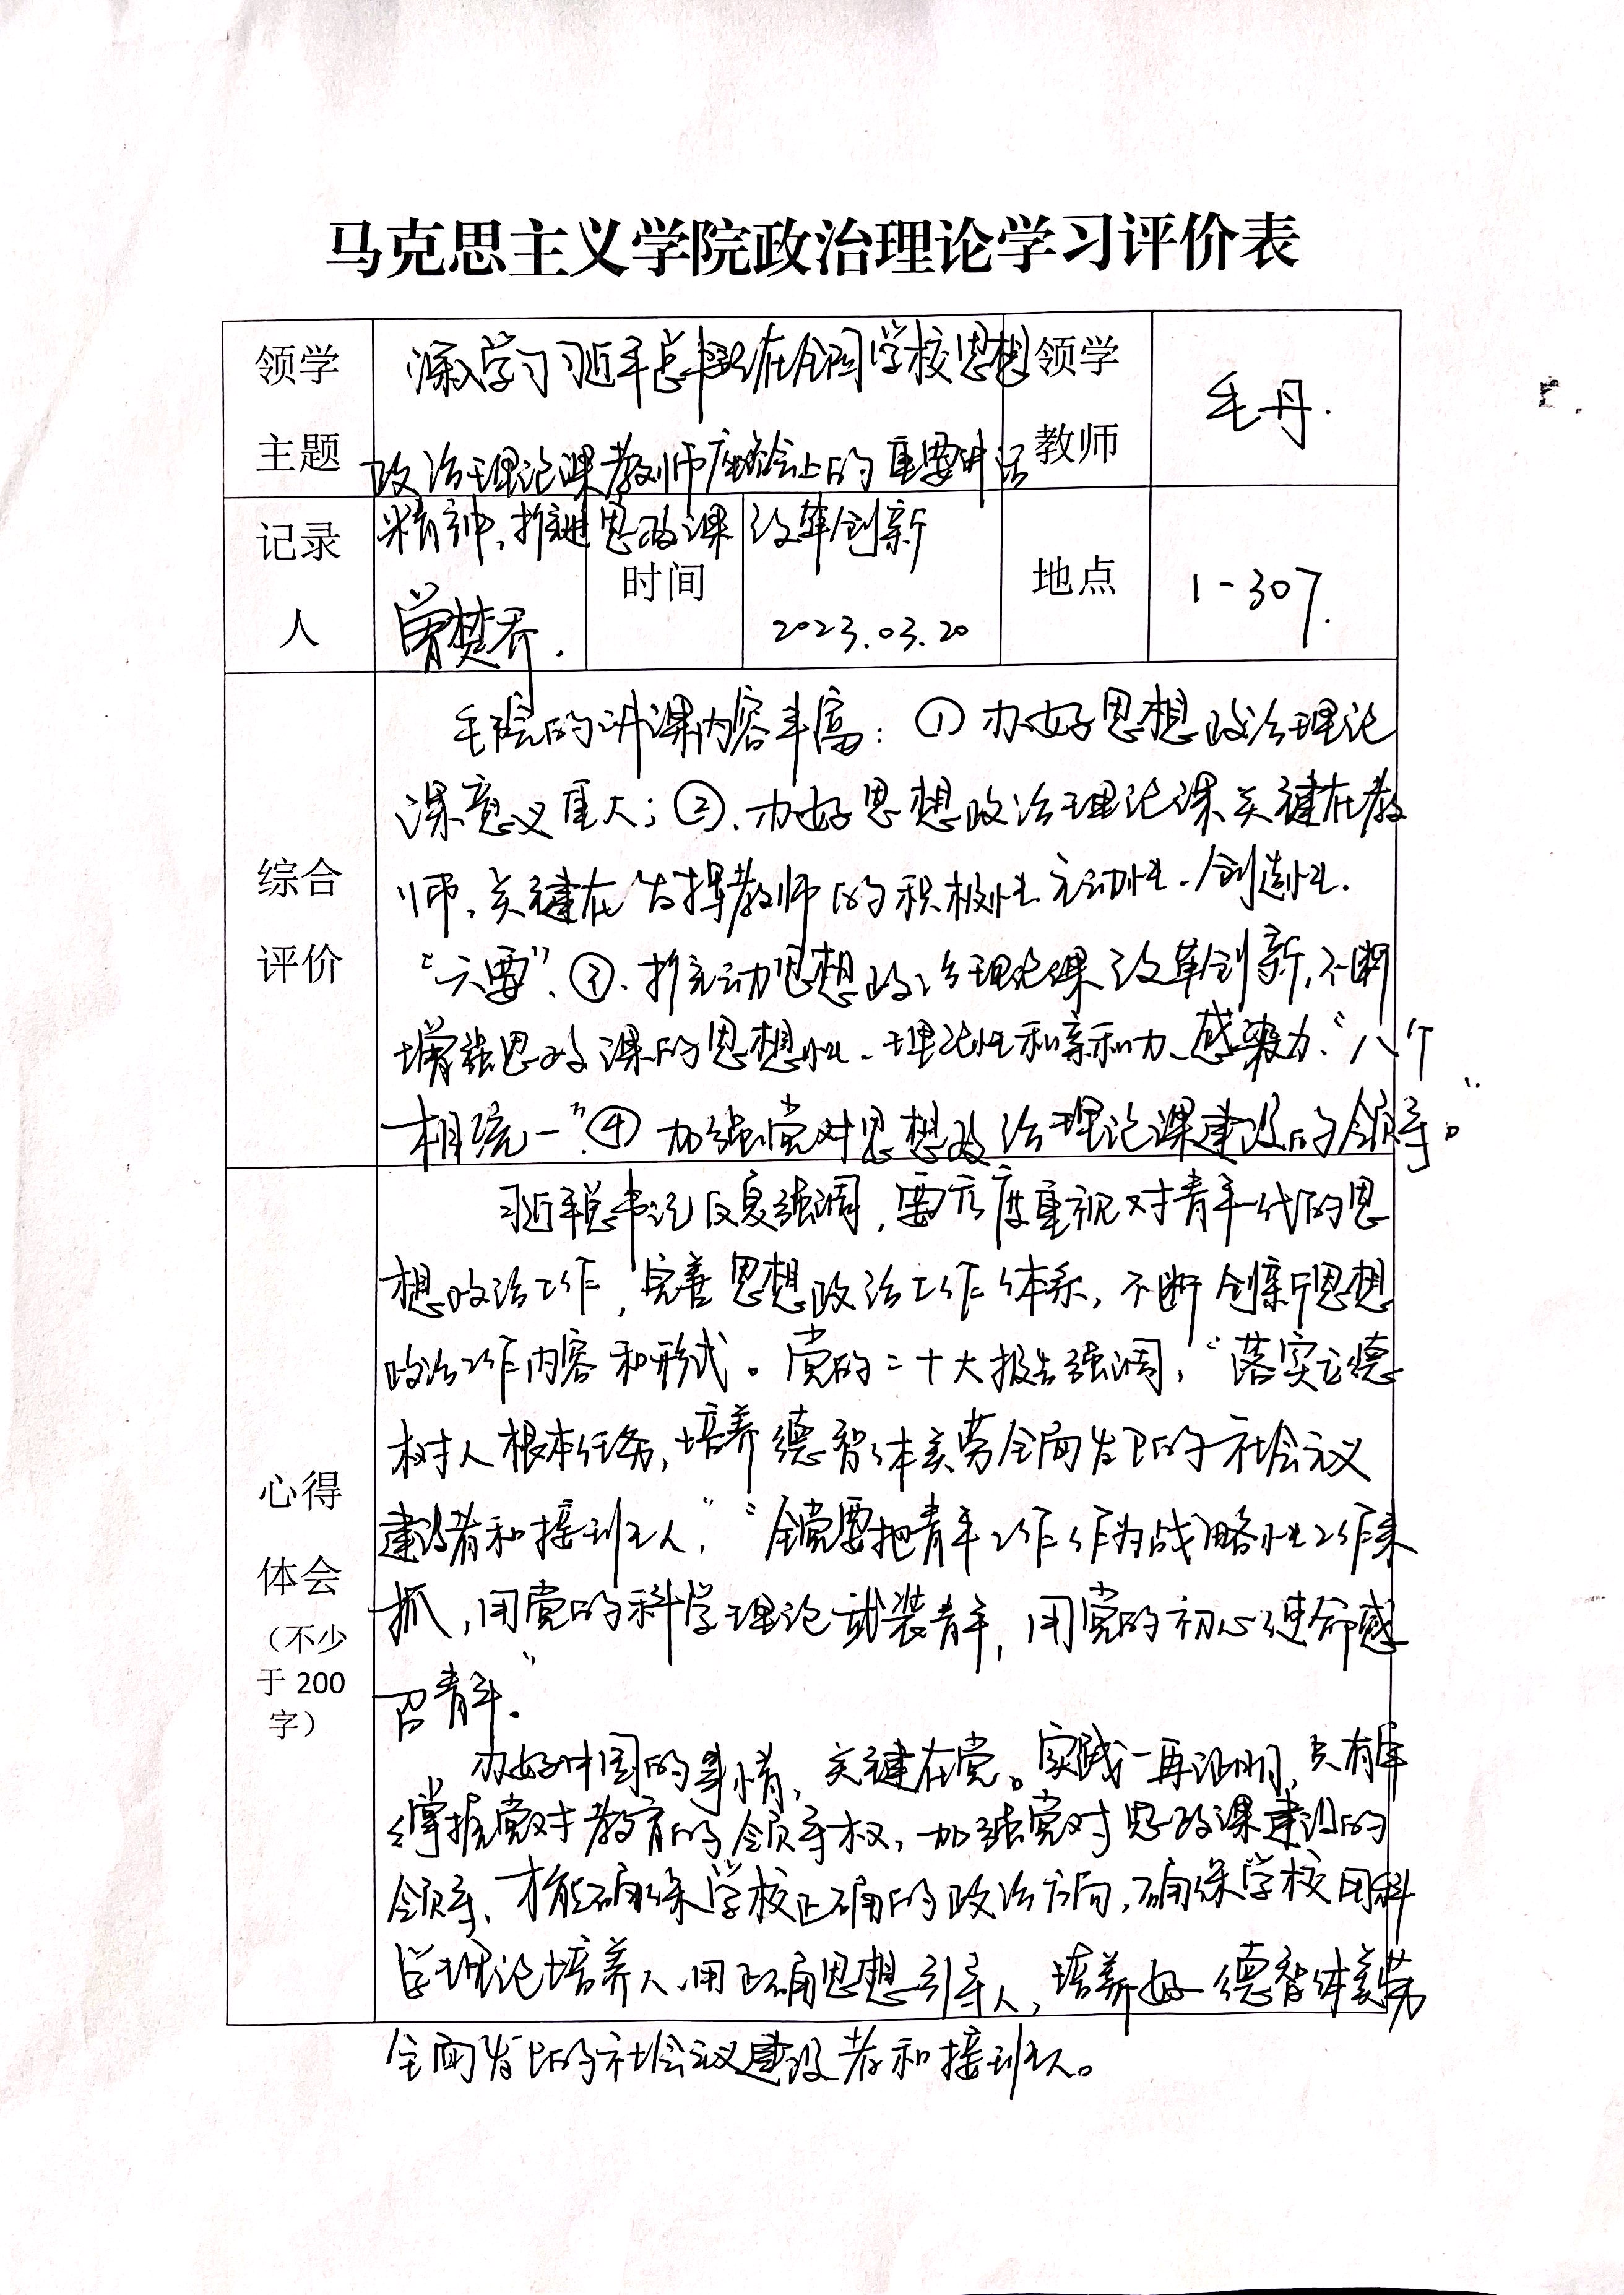 马克思主义学院政治理论学习评价表
领学
主题
深入学习习近平总书记在全国学校思想
政治理论课教师座谈会上的重要讲话
精神,推进思政课改革创新
领学
教师
毛丹.
记录
人
曾楚乔.
时间
2023.03.20
地点
1-307.
综合
评价
毛院的讲课内容丰富:①办好思想政治理论
课意义重大;②、办好思想政治理论课关键在教
师,关键在发挥教师的积极性、主动性、创造性.
“六要”、③、推动思想政治理论课改革创新,不断
增强思政课的思想性、理论性和亲和力、感染力、“八个
相统一”.④加强党对思想政治理论课建设的领导。”
心得
体会
(不少
于 200
字)
习近平总书记反复强调,要高度重视对青年一代的思
想政治工作,完善思想政治工作体系,不断创新思想
政治工作内容和形式。党的二十大报告强调,“落实立德
树人根本任务,培养德智体美劳全面发展的社会主义
建设者和接班人”,“全党要把青年工作作为战略性工作来
抓,用党的科学理论武装青年,用党的初心使命感
召青年.”
办好中国的事情,关键在党。实践一再证明,只有牢
牢掌握党对教育的领导权,加强党对思政课建设的
领导,才能确保学校正确的政治方向,确保学校用科
学理论培养人、用正确思想引导人,培养好德智体美劳
全面发展的社会主义建设者和接班人。